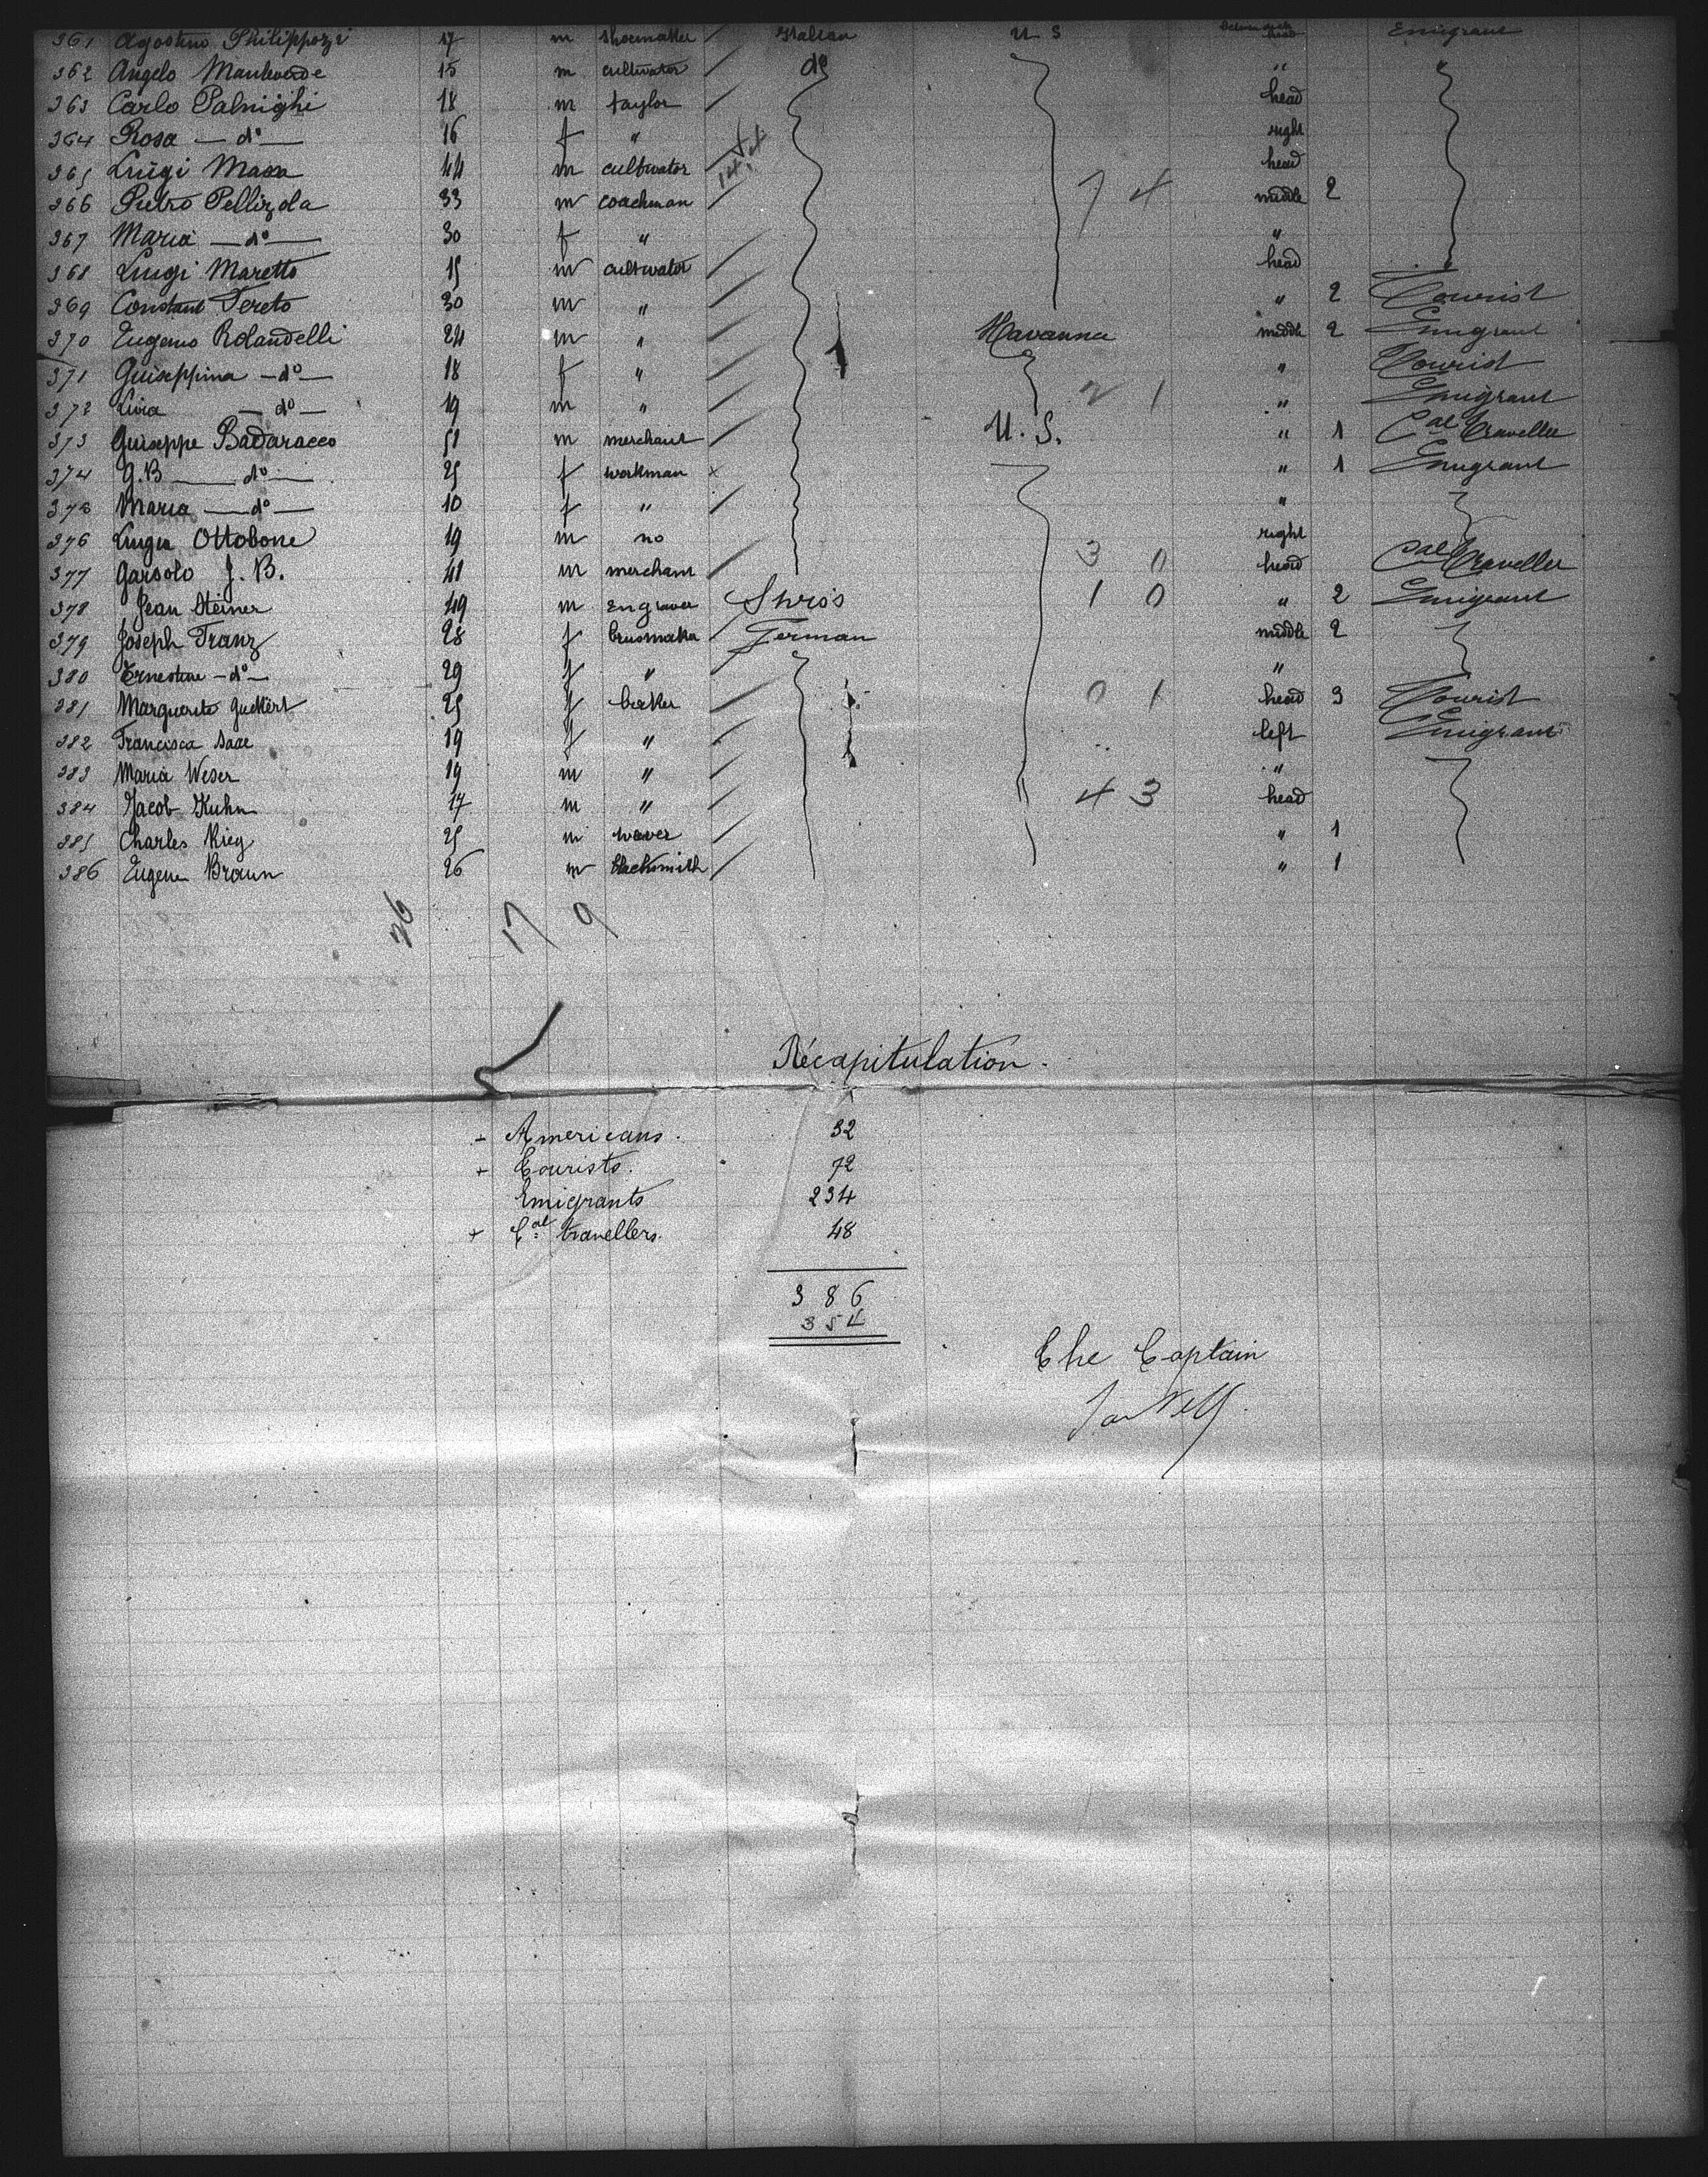 361 Agostino Philippozzi 17 m shoemaker / Italian U S head Emigrant
362 Angelo Monteverde 15 m cultivator / do " "
363 Carlo Palnighi 18 m taylor / head
364 Rosa — do — 16 f " right
365 Luigi Massa 44 m cultivator / head
366 Pietro Pellizola 33 m coachman / 7 4 middle 2
367 Maria — do — 30 f " "
368 Luigi Maretto 15 m cultivator / head
369 Constant Fereto 30 m " / " 2 Tourist
370 Eugenio Rolandelli 24 m " / Havanna middle 2 Emigrant
371 Guiseppina — do — 18 f " / " Tourist
372 Livia — do — 19 m " / 2 1 " Emigrant
373 Guiseppe Badaracco 51 m merchant / U. S. " 1 Cal traveller
374 G.B — do — 25 f workman x " 1 Emigrant
375 Maria — do — 10 f " / "
376 Luigia Ottobone 19 m no right
377 Garsolo J. B. 41 m merchant / 3 0 head Cal traveller
378 Jean Steiner 49 m Engraver / 1 0 " 2 Emigrant
379 Joseph Franz 28 f / German middle 2
380 Ernestine — do — 29 f " / "
381 Marguerite Guckert 25 f baker / 0 1 head 3 Tourist
382 Francisca 19 f " / left Emigrant
383 Maria Weser 19 m " / "
384 Jacob Kuhn 17 m " / 4 3 head
385 Charles Rieg 25 m waver / " 1
386 Eugene Braun 26 m blacksmith / " 1
26 17 9
Récapitulation.
- Americans. 32
+ Tourists. 72
Emigrants 234
+ Cal travellers. 48
386
354
The Captain